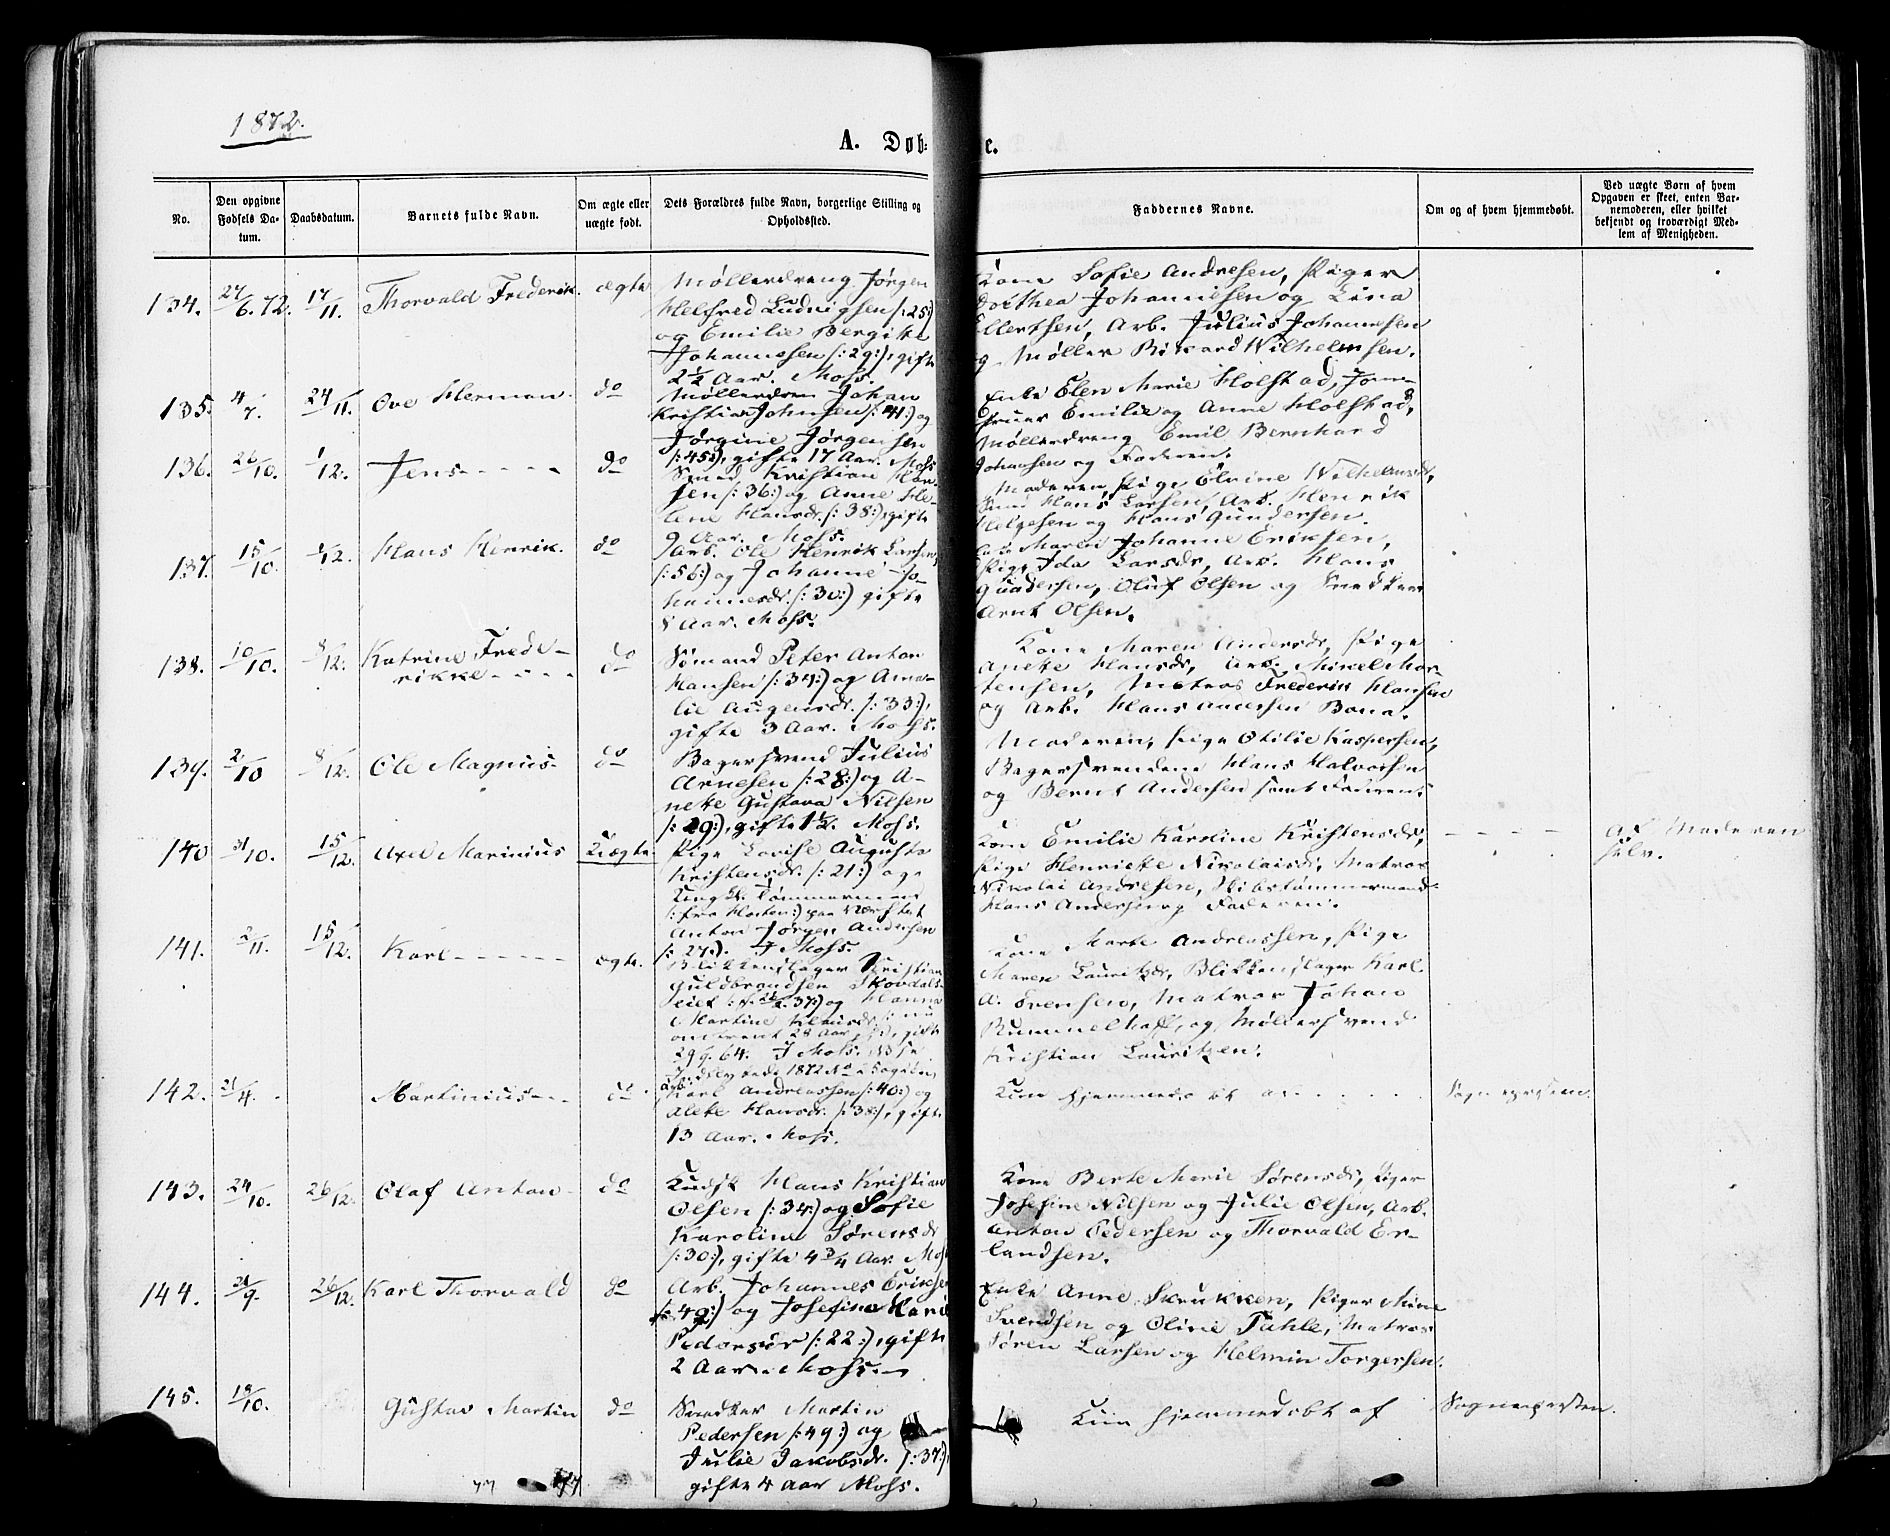 1872.
A. Døb-
e.
No.
Den opgivne Fødsels Da-tum.
Daabsdatum.
Barnets fulde Navn.
Om ægte eller uægte født.
Dets Forældres fulde Navn, borgerlige Stilling og Opholdssted.
Faddernes Navne.
Om og af hvem hjemmedøbt.
Ved uægte Børn af hvem Opgaven er skeet, enten Bar-nemoderen, eller hvilket bekjendt og troværdigt Med-lem af Menigheden.
134. 27/6. 72. 17/11. Thorvald Frederik. ægte
Møllerdreng Jørgen
Helfred Ludvigsen /:25:/
og Emilie Bergite
Johannesen /:29:/, gifte
2½ Aar. Moss.
Kone Sofie Andresen, Piger
Dorthea Johannesen og Lina
Ellertsen, Arb. Julius Johannesen
og Møller Rikard Wilhelmsen.
135. 4/7. 24/11. Ove Herman. do
Johan
Kristian Johnsen /:41:/ og
Jørgine Jørgensen
/:45:/, gifte 17 Aar. Moss
Enke Elen Marie Holstad, Jom-
fruer Emilie og Anne Holstad,
Møllerdreng Emil Bernhard
Johansen og Faderen.
136. 26/10. 1/12. Jens - - - - do
Smed Kristian
/:36:/ og Anne He-
lene Hansdr. /:38:/, gifte
9 Aar. Moss.
Moderen, Pige Elvine Wilhelmsdr,
Smed Hans Larsen, Arb. Henrik
Helgesen og Hans Gundersen.
137. 15/10. 1/12. Hans Henrik. do
Arb. Ole Henrik Larsen
/:56:/ og Johanne Jo-
hannesdr. /:30:/ gifte
8 Aar. Moss.
Maren Johanne Eriksen,
Pige Ida Larsdr, Arb. Hans
Gundersen, Oluf Olsen og Snedker
Arnt Olsen.
138. 10/10. 8/12. Katrine Frede-
rikke - - - - do
Sømand Peter Anton
Hansen /:34:/ og Ama-
lie Augensdr. /:33:/,
gifte 3 Aar. Moss.
Kone Maren Andersdr, Pige
Anette Hansdr, Arb. Mikel Mor-
tensen, Matros Frederik Hansen
og Arb. Hans Andersen Bona.
139. 2/10 8/12. Ole Magnus - do
Bagersvend Julius
Arnesen /:28:/ og A-
nette Gustava Nilsen
/:29:/, gifte 1½. Moss.
Moderen, Pige Otilie Kaspersen,
Bagersvendene Hans Halvorsen
og Bernt Andersen samt Faderen.
140 31/10. 15/12. Axel Marinius Uægte.
Pige Lovise Augusta
Kristensdr. /:21:/ og
Ungk. Tømmermand
/:fra Horten:/ paa Værftet
Anton Jørgen Andersen
/:27:/. I Moss.
Kone Emilie Karoline Kristensdr,
Pige Henriette Nikolaisdr, Matros
Nikolai Andresen, Skibstømmermand
Hans Andersen og Faderen.
- - - -
Af Moderen
selv.
141. 2/11. 15/12. Karl - - - - - - ægte.
Blikkenslager Kristian
Guldbrandsen
37:/ og Hanna
Martine
29/9. 64. I Moss.
1872 No
Kone Marte Andreassen, Pige
Maren Lauritzdr, Blikkenslager Karl
A. Evensen, Matros Johan
Rummelhoff, og Møllersvend
Kristian Lauritzen.
142. 21/4. Martinius - - - do.
Arb. Karl Andreassen /:40:/ og
Alette Hansdr. /:38:/, gifte
13 Aar. Moss.
Kun hjemmedøbt af . . . . . Sognepresten.
143. 24/10. 26/12. Olaf Anton - do
Kudsk Hans Kristian
Olsen /:34:/ og Sofie
Karoline Sørensdr
/:30:/, gifte 4 3/4 Aar. Moss
Kone Berte Marie Sørensdr, Piger
Josefine Nilsen og Julie Olsen, Arb.
Anton Pedersen og Thorvald Er-
landsen.
144. 21/9. 26/12. Karl Thorvald do
Arb. Johannes Eriksen
/:49:/ og Josefine Marie
/:22:/, gifte
2 Aar. Moss.
Enke Anne Skrukken, Piger Mina
Svendsen og Oline Tahle, Matros
Søren Larsen og Helmin Torgersen.
145. 19/10. Gustav Martin do
Snedker Martin
Pedersen /:49:/ og
Julie Jakobsdr. /:37:/,
gifte 4 Aar Moss.
Kun hjemmedøbt af Sognepresten.
77 77